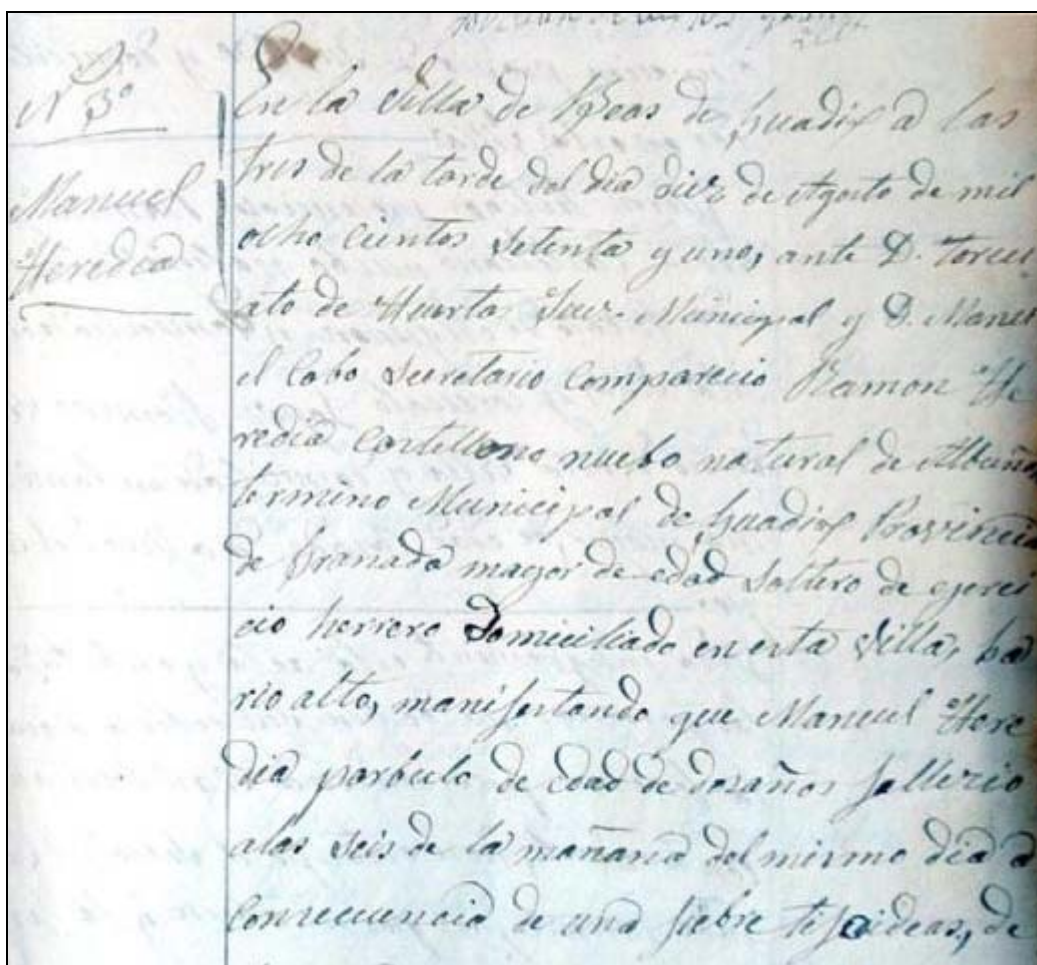 Nº 3º
Manuel
Heredia
En la Villa de Beas de Guadix a las
tres de la tarde del dia diez de Agosto de mil
ocho cientos setenta y uno, ante D. Torcu
ato de Huertas Juez Municipal y D. Manu
el Cobo Secretario Comparecio Ramon He
redia Castellano nuebo natural de Albuñan
termino Municipal de Guadix Provincia
de Granada mayor de edad soltero de egerci
cio herrero Domiciliado en esta Villa, ba
rio alto, manifestando que Manuel Here
dia parbulo de edad de dos años fallecio
a las seis de la mañana del mismo dia a
consecuencia de una fiebre tifoideas, de